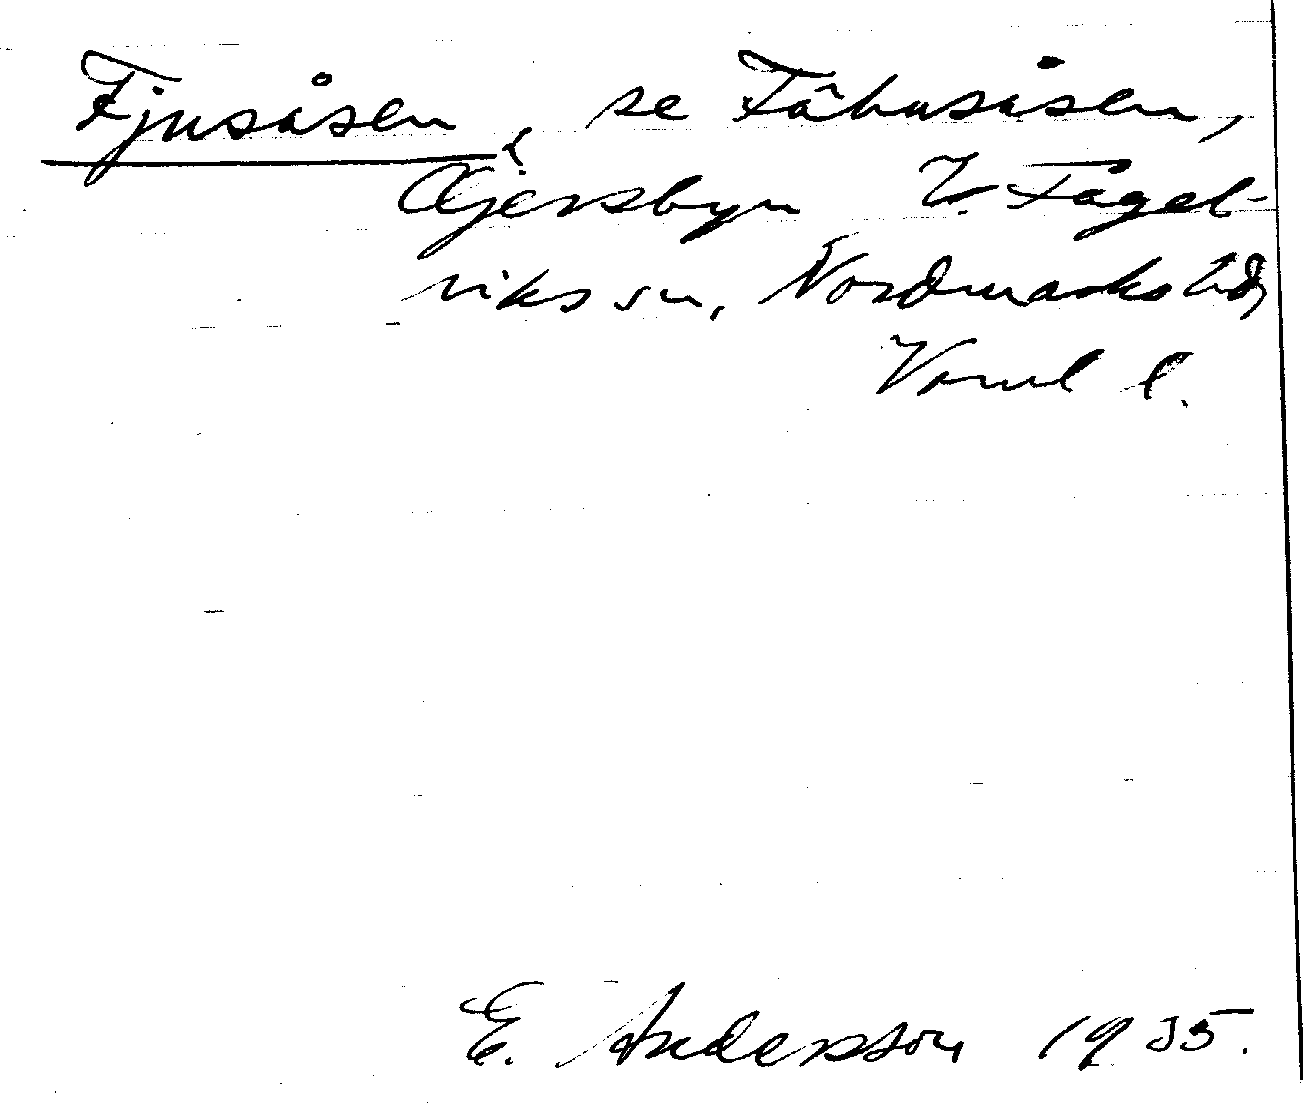 Fjusåsen, se Fähusåsen,
Ögersbyn V. Fågel-
viks sn, Nordmarks hd,
Värml l.
E. Andersson 1935.